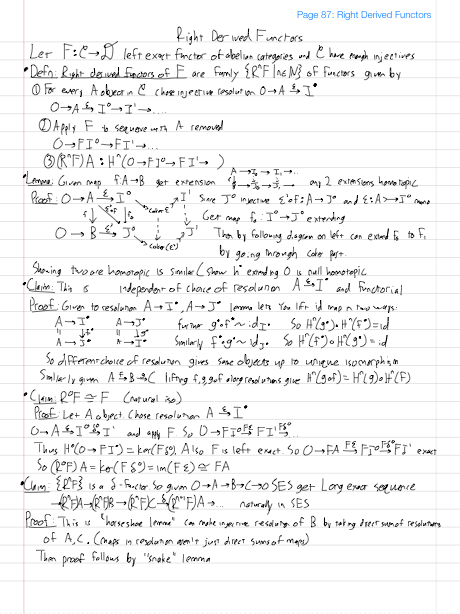 Page 87: Right Derived Functors
Right Derived Functors
Let F: C → D left exact functor of abelian categories and C have enough injectives
• Defn: Right derived functors of F are family {RⁿF | n∈N} of functors given by
① For every A object in C chose injective resolution 0→A →ε I•
0→A →ε I⁰→I¹→...
② Apply F to sequence with A removed
0→FI⁰→FI¹→...
③ (RⁿF)A : Hⁿ(0→FI⁰→FI¹→ )
• Lemma: Given map f:A→B get extension A→I₀→I₁→.. B→J₀→J₁→ any 2 extensions homotopic
Proof: 0→A →ε I⁰ I¹ Since J⁰ injective ε'∘f: A→J⁰ and ε:A↣I⁰ mono
f ε'∘f f₀ coker ε Get map f₀: I⁰→J⁰ extending
0→B →ε' J⁰ J¹ Then by following diagram on left can extend f₀ to F₁
coker(ε') by going through coker part.
Showing two are homotopic is similar (show h• extending 0 is null homotopic
• Claim: This is independent of choice of resolution A →ε I• and functorial
Proof: Given to resolution A→I•, A→J• lemma lets you lift id map in two ways:
A→I• A→J• further g•∘f•~id_I•. So Hⁿ(g•)∘Hⁿ(f•)=id
‖ ↓f• ‖ ↓g•
A→J• A→I• Similarly f•∘g•~id_J•. So Hⁿ(f•)∘Hⁿ(g•)=id
So different choice of resolution gives same objects up to unique isomorphism
Similarly given A →f B →g C lifting f,g,g∘f along resolutions give Hⁿ(g∘f)=Hⁿ(g)∘Hⁿ(F)
• Claim: R⁰F ≅ F (natural iso)
Proof: Let A object. Chose resolution A →ε I•
0→A →ε I⁰ →δ⁰ I¹ and apply F. So 0→FI⁰ →Fδ⁰ FI¹ →Fδ¹ ...
Thus H⁰(0→FI•)=ker(Fδ⁰). Also F is left exact. So 0→FA →Fε FI⁰ →Fδ⁰ FI¹ exact
So (R⁰F)A = ker(Fδ⁰)=im(Fε)≅FA
• Claim: {RⁿF} is a δ-Functor so given 0→A→B→C→0 SES get Long exact sequence
→(RⁿF)A→(RⁿF)B→(RⁿF)C→(Rⁿ⁺¹F)A→... naturally in SES
Proof: This is "horseshoe lemma" can make injective resolution of B by taking direct sum of resolutions
of A, C. (maps in resolution aren't just direct sums of maps)
Then proof follows by "snake" lemma